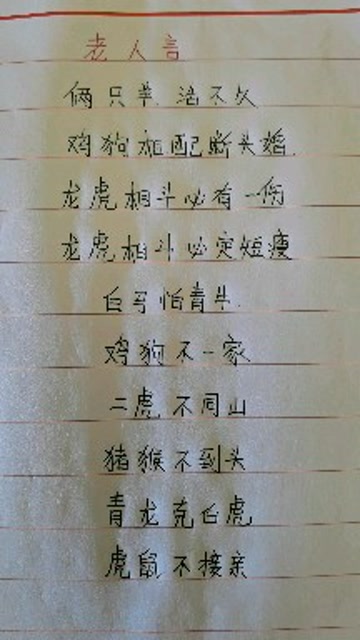 老人言
俩只羊 活不久
鸡狗相配断头婚.
龙虎相斗必有一伤
龙虎相斗必定短瘦
白马怕青牛.
鸡狗不一家
二虎不同山
猪猴不到头
青龙克白虎
虎鼠不接亲